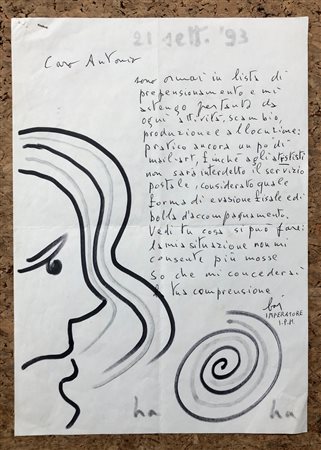 21 sett. '93
Caro Antonio
sono ormai in lista di
prepensionamento e mi
astengo pertanto da
ogni attività, scambio,
produzione e allocuzione:
pratico ancora un po' di
mail-art, finché agli artisti
non sarà interdetto il servizio
postale, considerato quale
forma di evasione fiscale e di
bolla d'accompagnamento.
Vedi tu cosa si può fare:
la mia situazione non mi
consente più mosse
So che mi concederai
la tua comprensione
baj
IMPERATORE
I.P.H.
ha ha